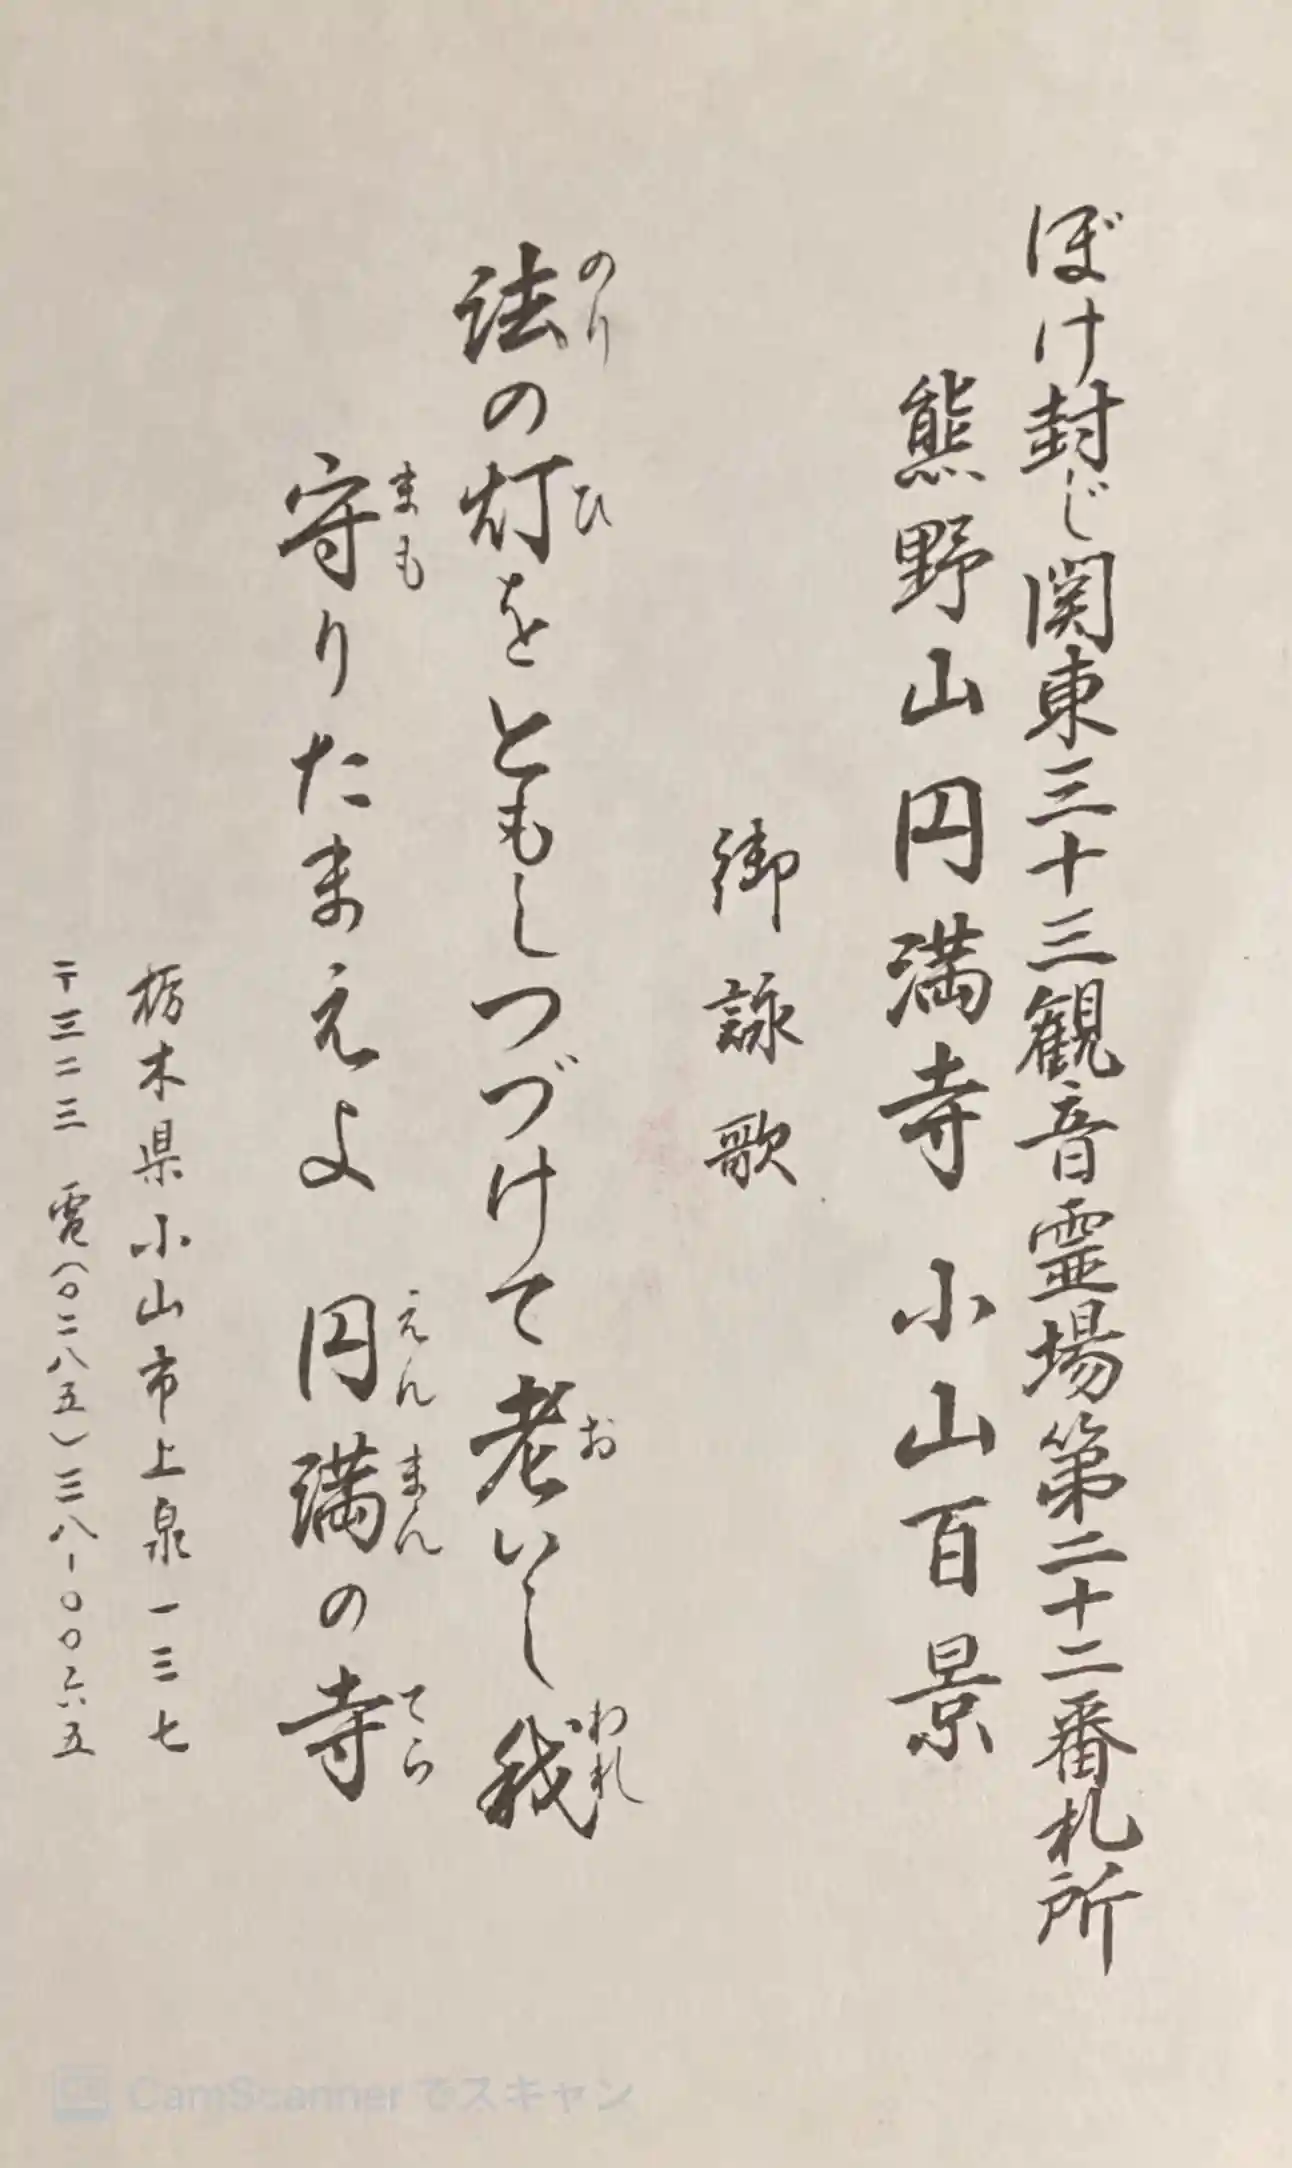 ぼけ封じ関東三十三観音霊場第二十二番札所
熊野山円満寺 小山百景
御詠歌
法の灯をともしつづけて老いし我
のり ひ お われ
守りたまえよ 円満の寺
まも えんまん てら
栃木県小山市上泉一三七
〒三二三 電(〇二八五)三八-〇〇六五
CamScannerでスキャン